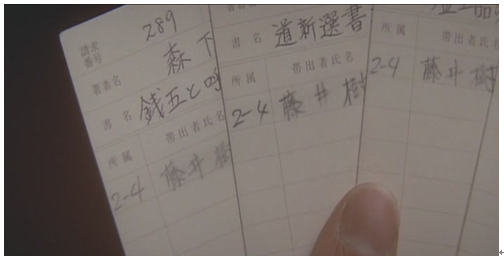 請求番号 289
著者名 森下
書名 銭五と
所属 帯出者氏名
2-4 藤井樹
書名 道新選書
所属 帯出者氏名
2-4 藤井樹
帯出者氏名
2-4 藤井樹